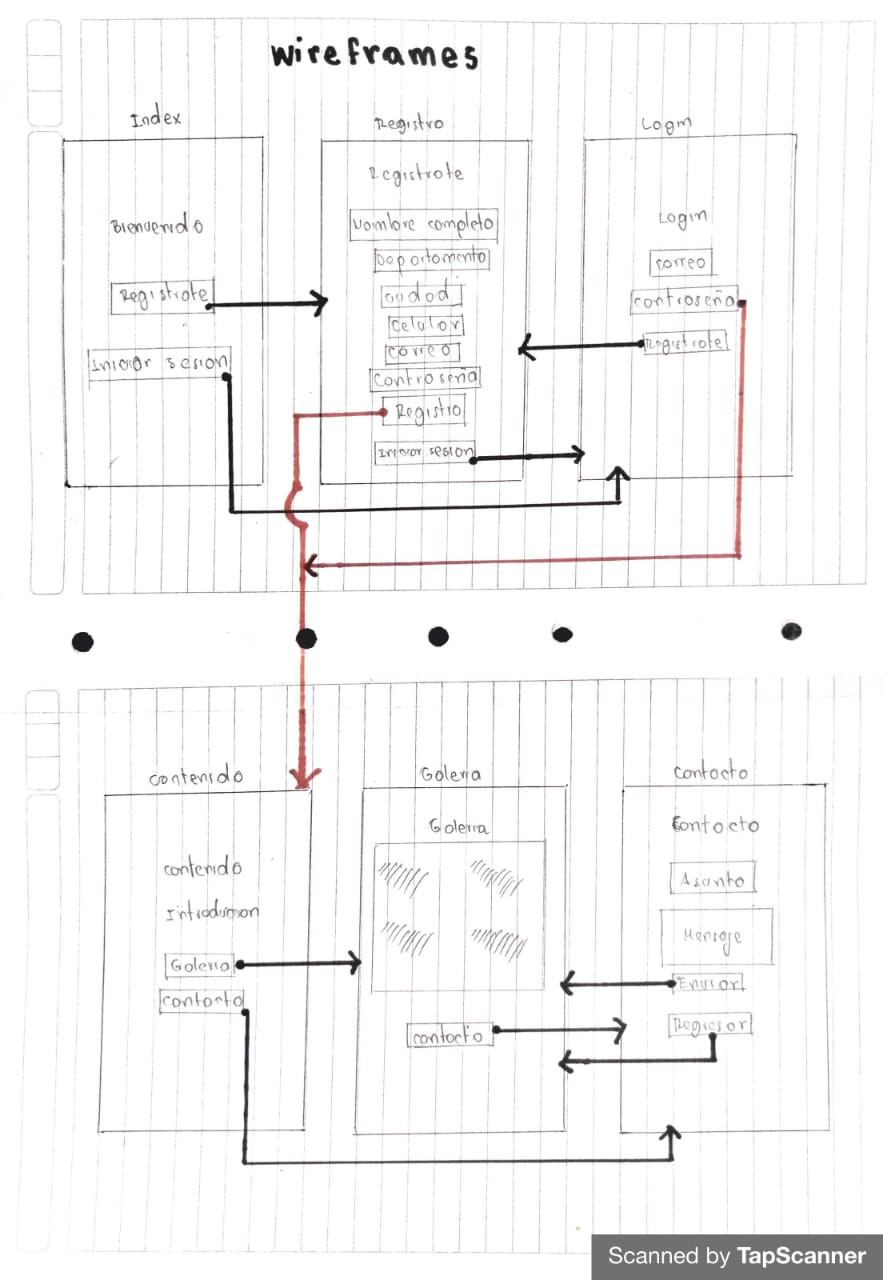 wireframes
Index
Bienvenido
Registrate
Iniciar sesion
Registro
Registrate
Nombre completo
Departamento
ciudad
celular
correo
contraseña
Registro
Iniciar sesion
Login
Login
correo
contraseña
Registrate
contenido
contenido
Introduccion
Galeria
contacto
Galeria
Galeria
contacto
contacto
contacto
Asunto
Mensaje
Enviar
Regresar
Scanned by TapScanner